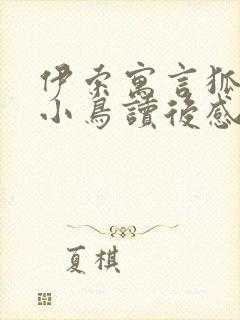 伊索寓言狐
小鳥讀後感
夏棋